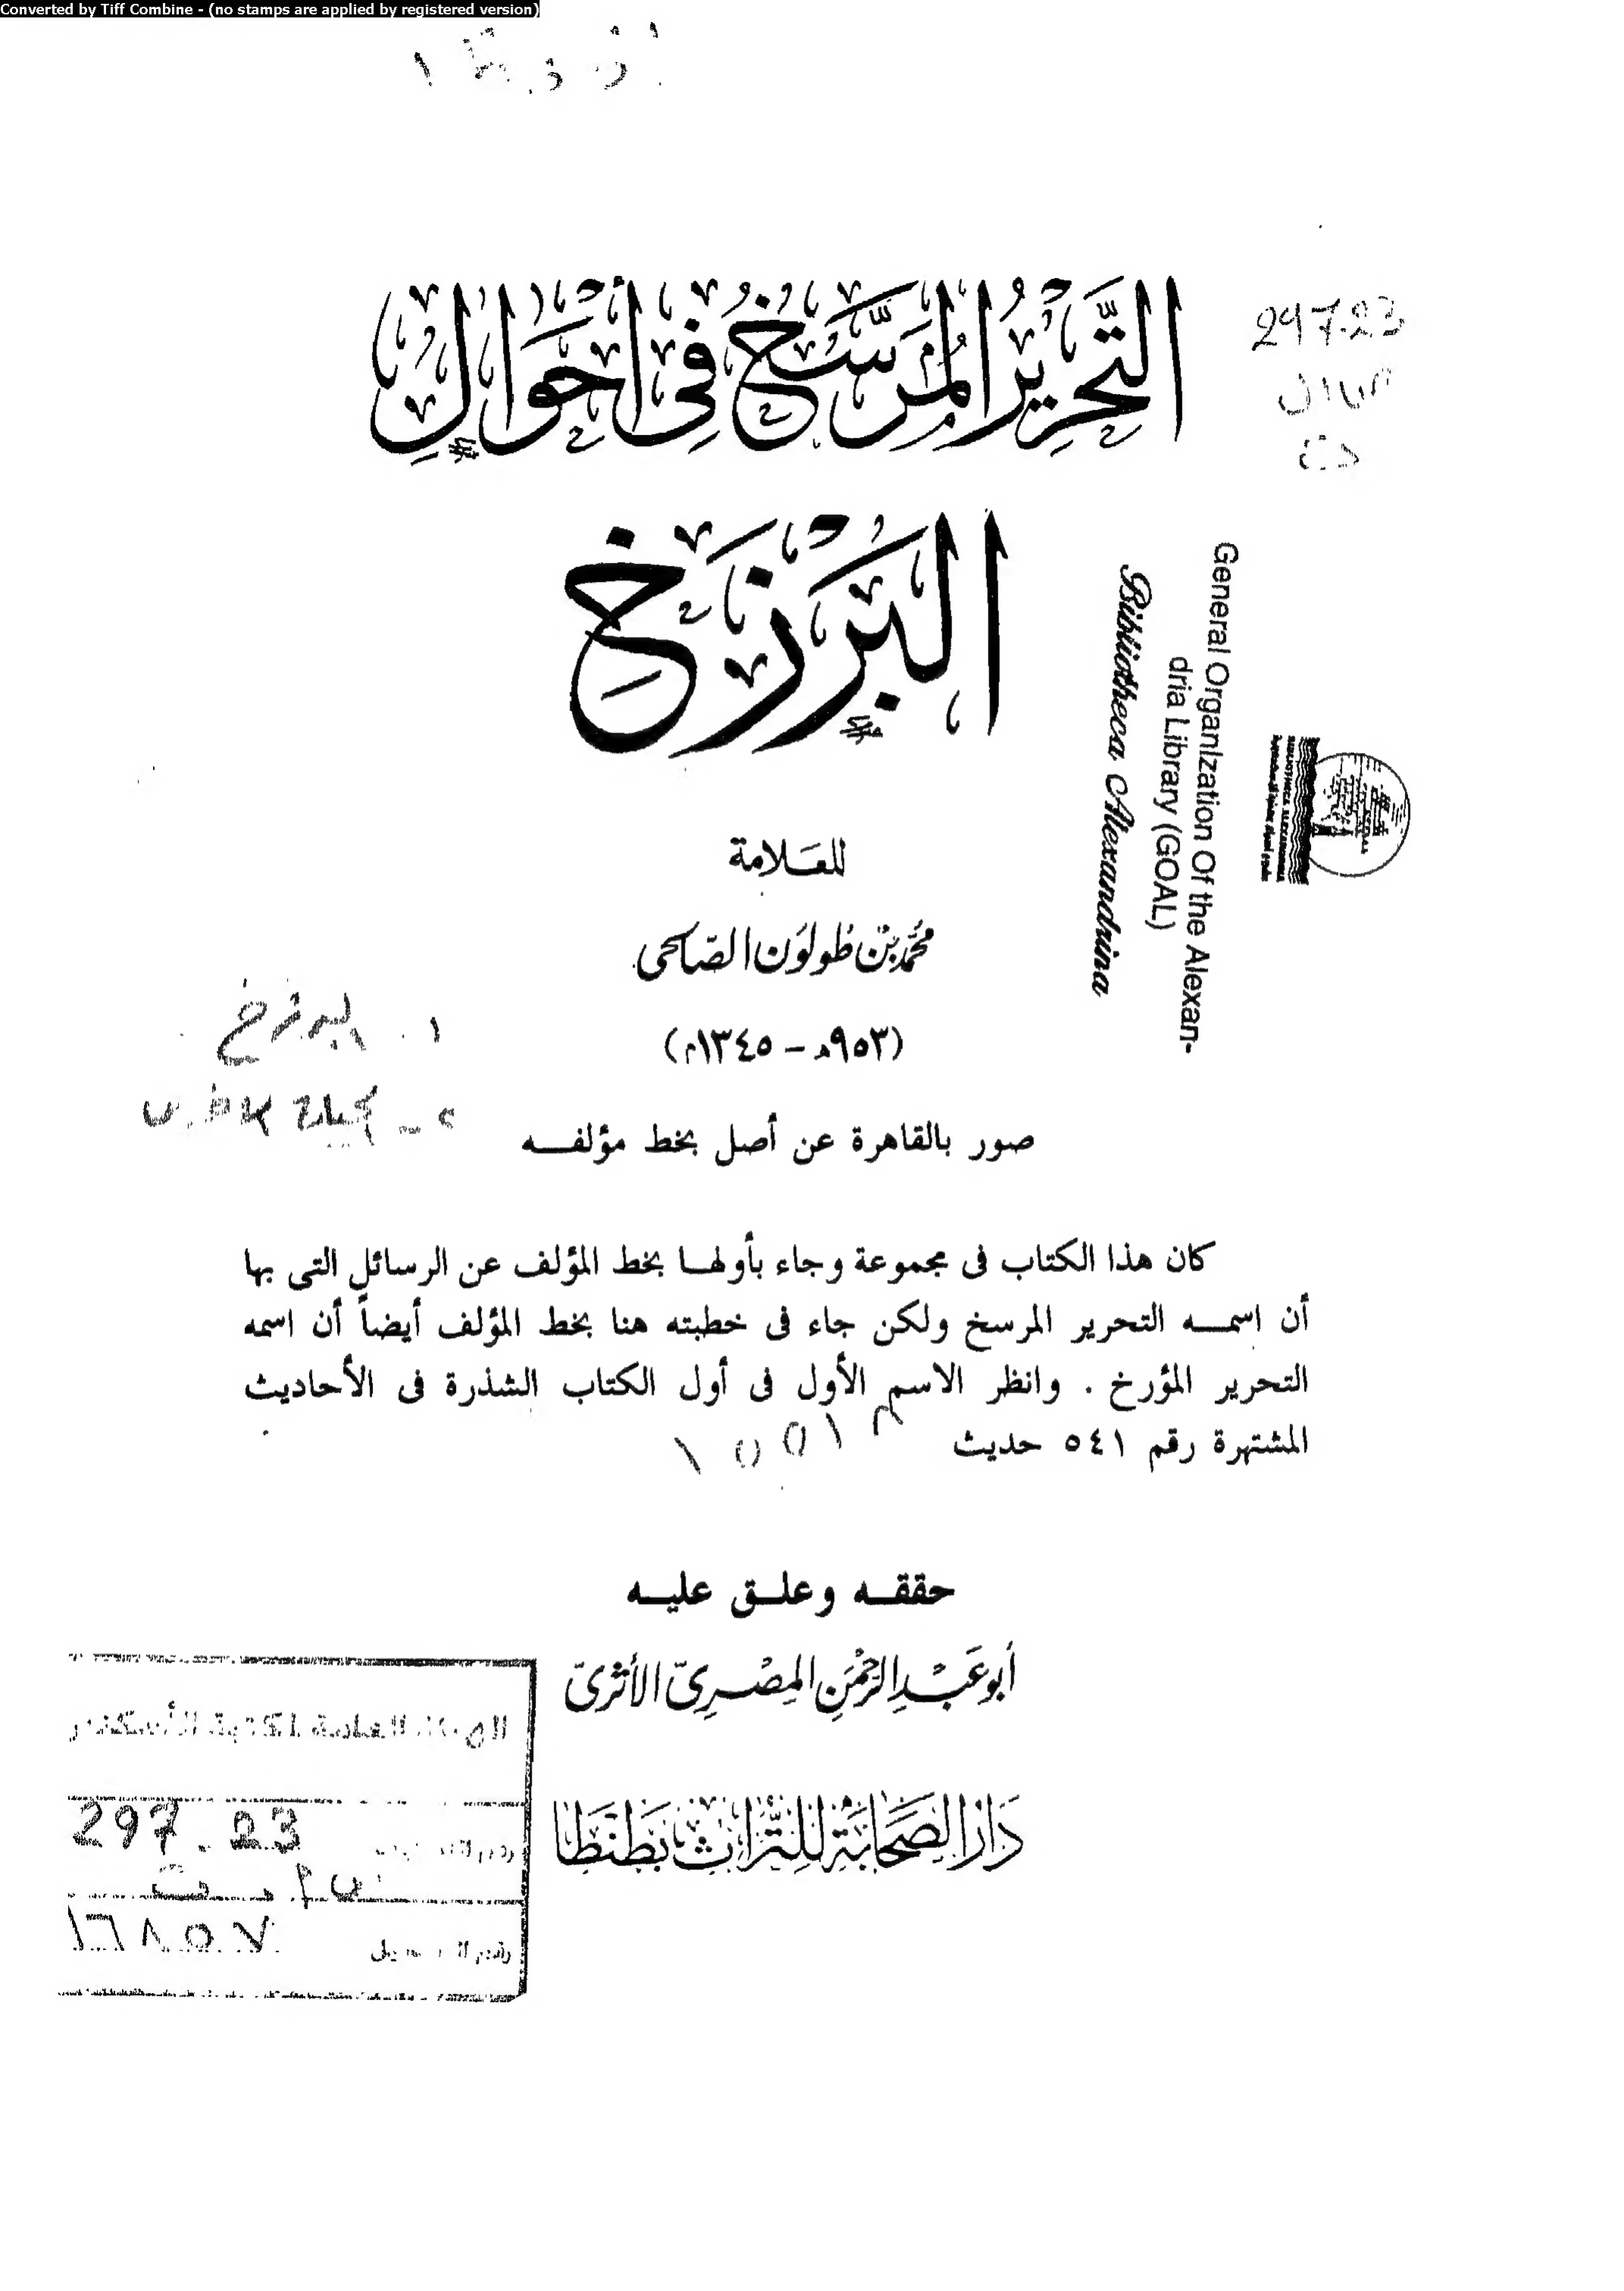 Converted by Tiff Combine - (no stamps are applied by registered version)
التَّحْرِيرُ المُرَسَّخُ فِي أَحْوَالِ
البَرْزَخِ
297.23
General Organization Of the Alexan-
dria Library (GOAL)
Bibliotheca Alexandrina
BIBLIOTHECA ALEXANDRINA
للعلامة
محمد بن طولون الصالحى
(٩٥٣هـ - ١٣٤٥م)
١. البرزخ
صور بالقاهرة عن أصل بخط مؤلفه
كان هذا الكتاب فى مجموعة وجاء بأولها بخط المؤلف عن الرسائل التى بها
أن اسمه التحرير المرسخ ولكن جاء فى خطبته هنا بخط المؤلف أيضاً أن اسمه
التحرير المؤرخ . وانظر الاسم الأول فى أول الكتاب الشذرة فى الأحاديث
المشتهرة رقم ٥٤١ حديث
حققه وعلق عليه
أبو عبد الرحمن المصرى الأثرى
دار الصحابة للتراث بطنطا
297.23
رقم التسجيل ١٦٨٥٧